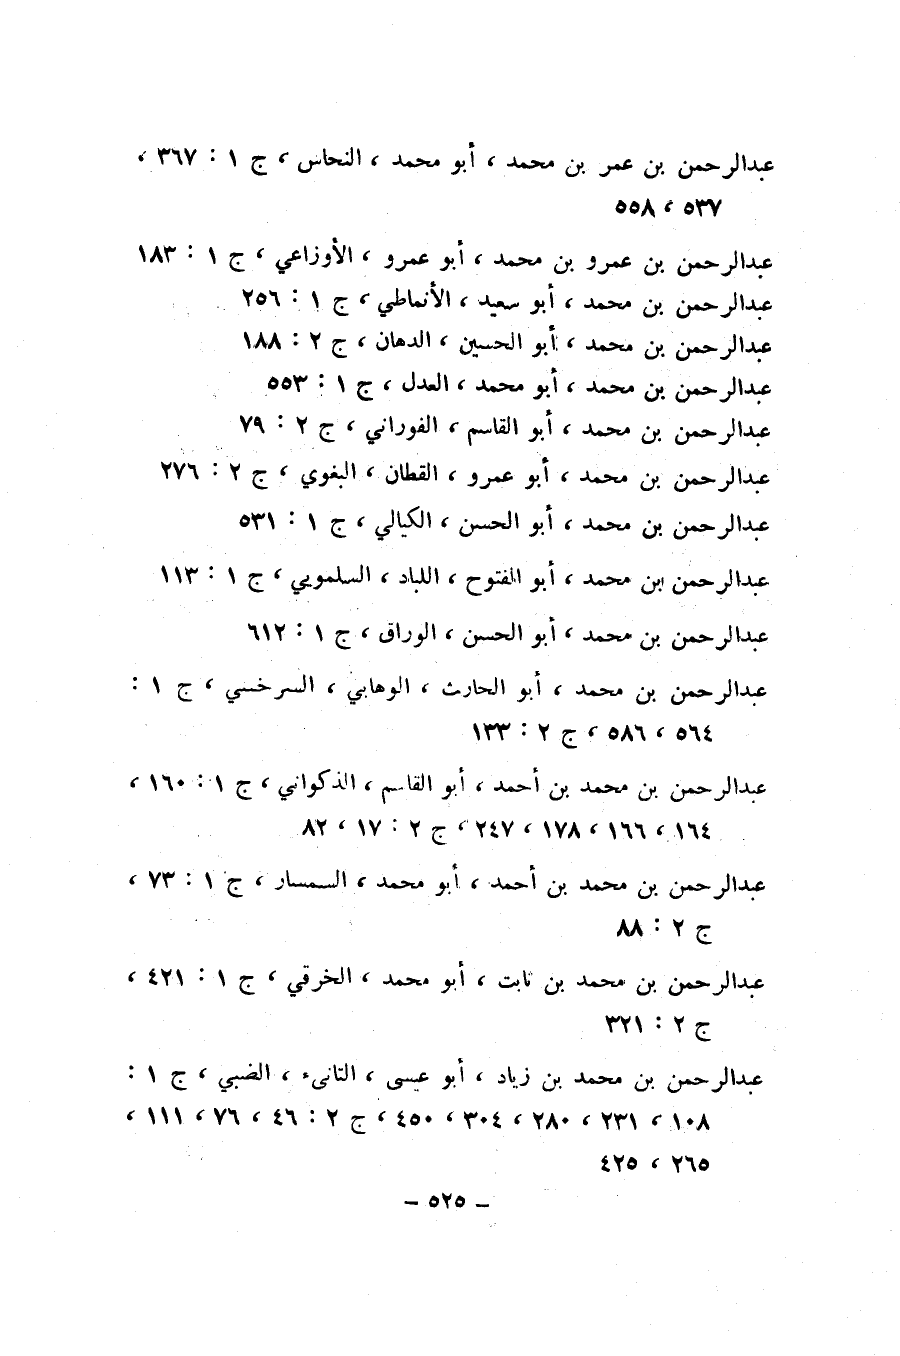 عبدالرحمن بن عمر بن محمد ، أبو محمد ، النحاس ، ج ١ : ٣٦٧ ،
٥٣٧ ، ٥٥٨
عبدالرحمن بن عمرو بن محمد ، أبو عمرو ، الأوزاعي ، ج ١ : ١٨٣
عبدالرحمن بن محمد ، أبو سعيد ، الأنماطي ، ج ١ : ٢٥٦
عبدالرحمن بن محمد ، أبو الحسين ، الدهان ، ج ٢ : ١٨٨
عبدالرحمن بن محمد ، أبو محمد ، العدل ، ج ١ : ٥٥٣
عبدالرحمن بن محمد ، أبو القاسم ، الفوراني ، ج ٢ : ٧٩
عبدالرحمن بن محمد ، أبو عمرو ، القطان ، البغوي ، ج ٢ : ٢٧٦
عبدالرحمن بن محمد ، أبو الحسن ، الكيالي ، ج ١ : ٥٣١
عبدالرحمن بن محمد ، أبو الفتوح ، اللباد ، السلمويي ، ج ١ : ١١٣
عبدالرحمن بن محمد ، أبو الحسن ، الوراق ، ج ١ : ٦١٢
عبدالرحمن بن محمد ، أبو الحارث ، الوهابي ، السرخسي ، ج ١ :
٥٦٤ ، ٥٨٦ ، ج ٢ : ١٣٣
عبدالرحمن بن محمد بن أحمد ، أبو القاسم ، الذكواني ، ج ١ : ١٦٠ ،
١٦٤ ، ١٦٦ ، ١٧٨ ، ٢٤٧ ، ج ٢ : ١٧ ، ٨٢
عبدالرحمن بن محمد بن أحمد ، أبو محمد ، السمسار ، ج ١ : ٧٣ ،
ج ٢ : ٨٨
عبدالرحمن بن محمد بن ثابت ، أبو محمد ، الخرقي ، ج ١ : ٤٢١ ،
ج ٢ : ٣٢١
عبدالرحمن بن محمد بن زياد ، أبو عيسى ، التانىء ، الضبي ، ج ١ :
١٠٨ ، ٢٣١ ، ٢٨٠ ، ٣٠٤ ، ٤٥٠ ، ج ٢ : ٤٦ ، ٧٦ ، ١١١ ،
٢٦٥ ، ٤٢٥
– ٥٢٥ –